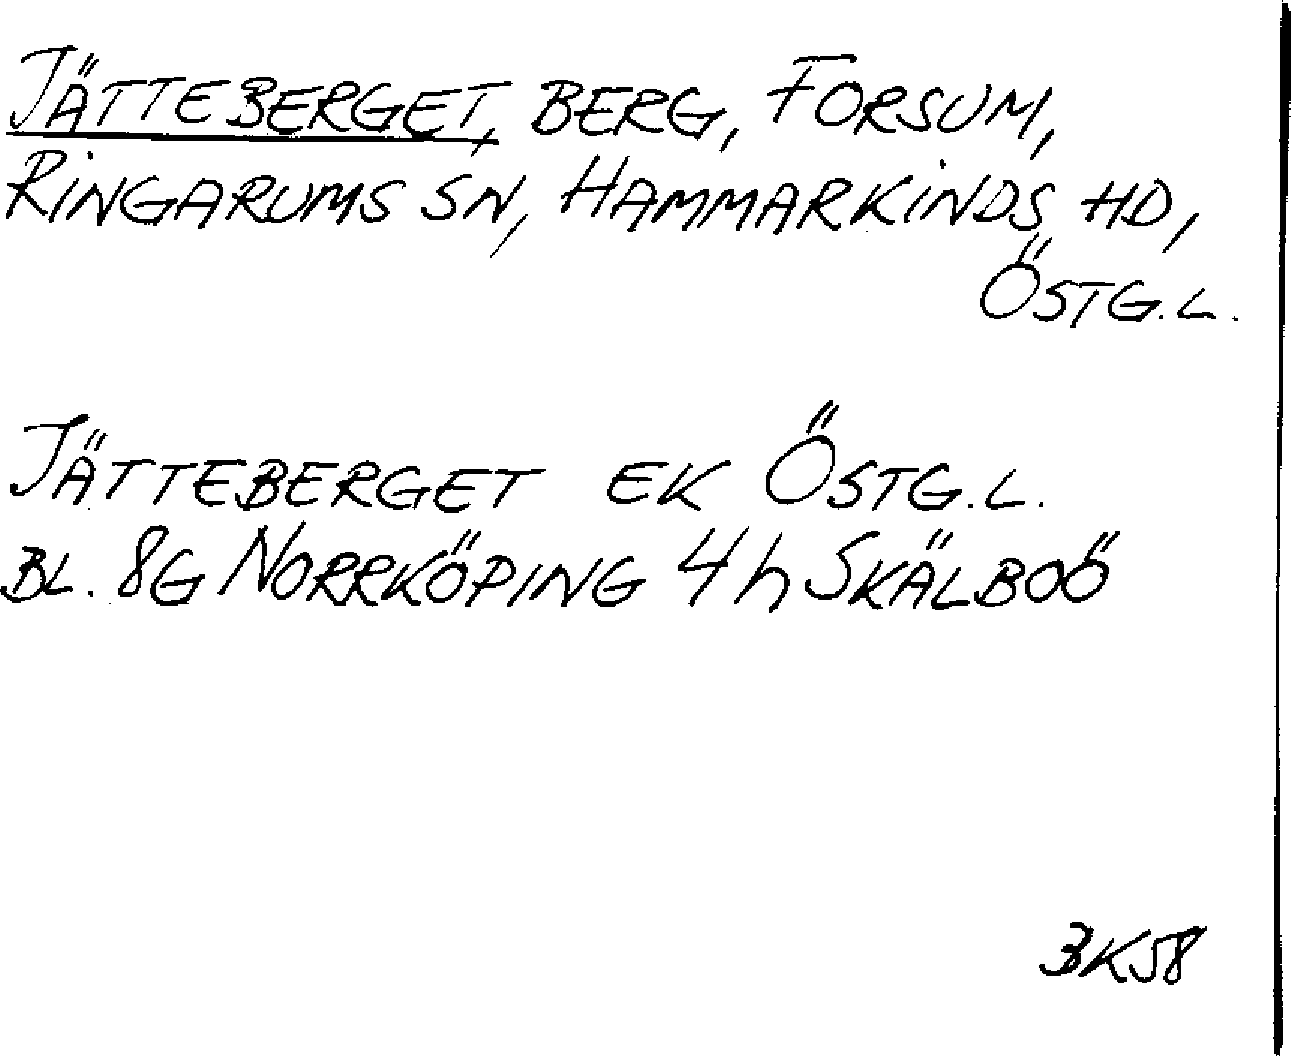 JÄTTEBERGET, BERG, FORSUM,
RINGARUMS SN, HAMMARKINDS HD,
ÖSTG.L.
JÄTTEBERGET EK ÖSTG.L.
BL. 8G NORRKÖPING 4h SKÄLBOÖ
BK58